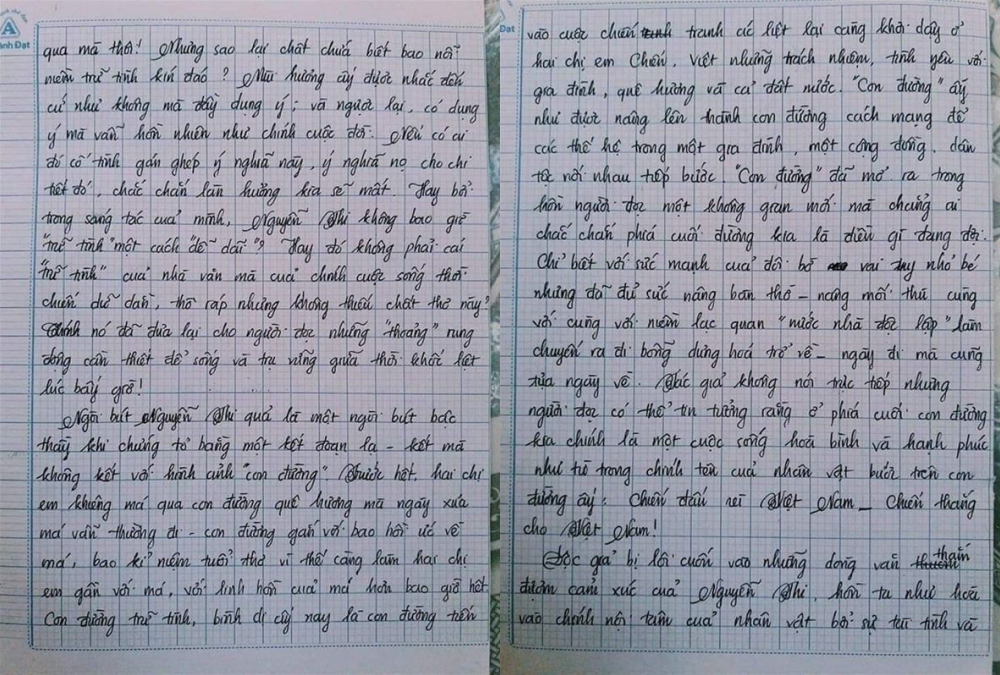 qua mà thôi! Nhưng sao lại chất chứa biết bao nỗi
niềm trữ tình kín đáo? Mùi hương ấy được nhắc đến
cứ như không mà đầy dụng ý; và ngược lại, có dụng
ý mà vẫn hồn nhiên như chính cuộc đời. Nếu có ai
đó cố tình gán ghép ý nghĩa này, ý nghĩa nọ cho chi
tiết đó, chắc chắn làn hương kia sẽ mất. Hay bởi
trong sáng tác của mình, Nguyễn Thi không bao giờ
"trữ tình" một cách "dễ dãi"? Hay đó không phải cái
"trữ tình" của nhà văn mà của chính cuộc sống thời
chiến dữ dằn, thô ráp nhưng không thiếu chất thơ này?
Chính nó đã đưa lại cho người đọc những "thoáng" rung
động cần thiết để sống và trụ vững giữa thời khốc liệt
lúc bấy giờ!
Ngòi bút Nguyễn Thi quả là một ngòi bút bậc
thầy khi chứng tỏ bằng một kết đoạn lạ - kết mà
không kết với hình ảnh "con đường". Trước hết, hai chị
em khiêng má qua con đường quê hương mà ngày xưa
má vẫn thường đi - con đường gắn với bao hồi ức về
má, bao kỉ niệm tuổi thơ vì thế càng làm hai chị
em gần với má, với linh hồn của má hơn bao giờ hết.
Con đường trữ tình, bình dị ấy nay là con đường tiến
vào cuộc chiến tranh ác liệt lại càng khơi dậy ở
hai chị em Chiến, Việt những trách nhiệm, tình yêu với
gia đình, quê hương và cả đất nước. "Con đường" ấy
như được nâng lên thành con đường cách mạng để
các thế hệ trong một gia đình, một cộng đồng, dân
tộc nối nhau tiếp bước. "Con đường" đã mở ra trong
hồn người đọc một không gian mới mà chẳng ai
chắc chắn phía cuối đường kia là điều gì đang đợi.
Chỉ biết với sức mạnh của đôi bờ vai tuy nhỏ bé
nhưng đã đủ sức nâng bàn thờ - nặng mối thù cùng
với cùng với niềm lạc quan "nước nhà độc lập" làm
chuyến ra đi bỗng dưng hoá trở về - ngày đi mà cũng
tựa ngày về. Tác giả không nói trực tiếp nhưng
người đọc có thể tin tưởng rằng ở phía cuối con đường
kia chính là một cuộc sống hoà bình và hạnh phúc
như từ trong chính tên của nhân vật bước trên con
đường ấy: Chiến đấu vì Việt Nam - Chiến thắng
cho Việt Nam!
Độc giả bị lôi cuốn vào những dòng văn thấm
đượm cảm xúc của Nguyễn Thi, hồn ta như hoà
vào chính nội tâm của nhân vật bởi sự tài tình và